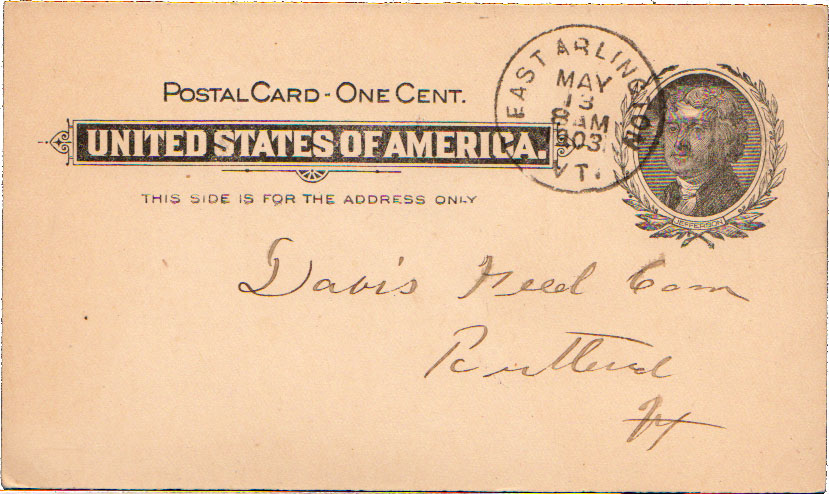 POSTAL CARD - ONE CENT.
UNITED STATES OF AMERICA.
THIS SIDE IS FOR THE ADDRESS ONLY
EAST ARLINGTON
MAY
13
AM
03
VT.
JEFFERSON
Davis Feed Com
Rutland
Vt